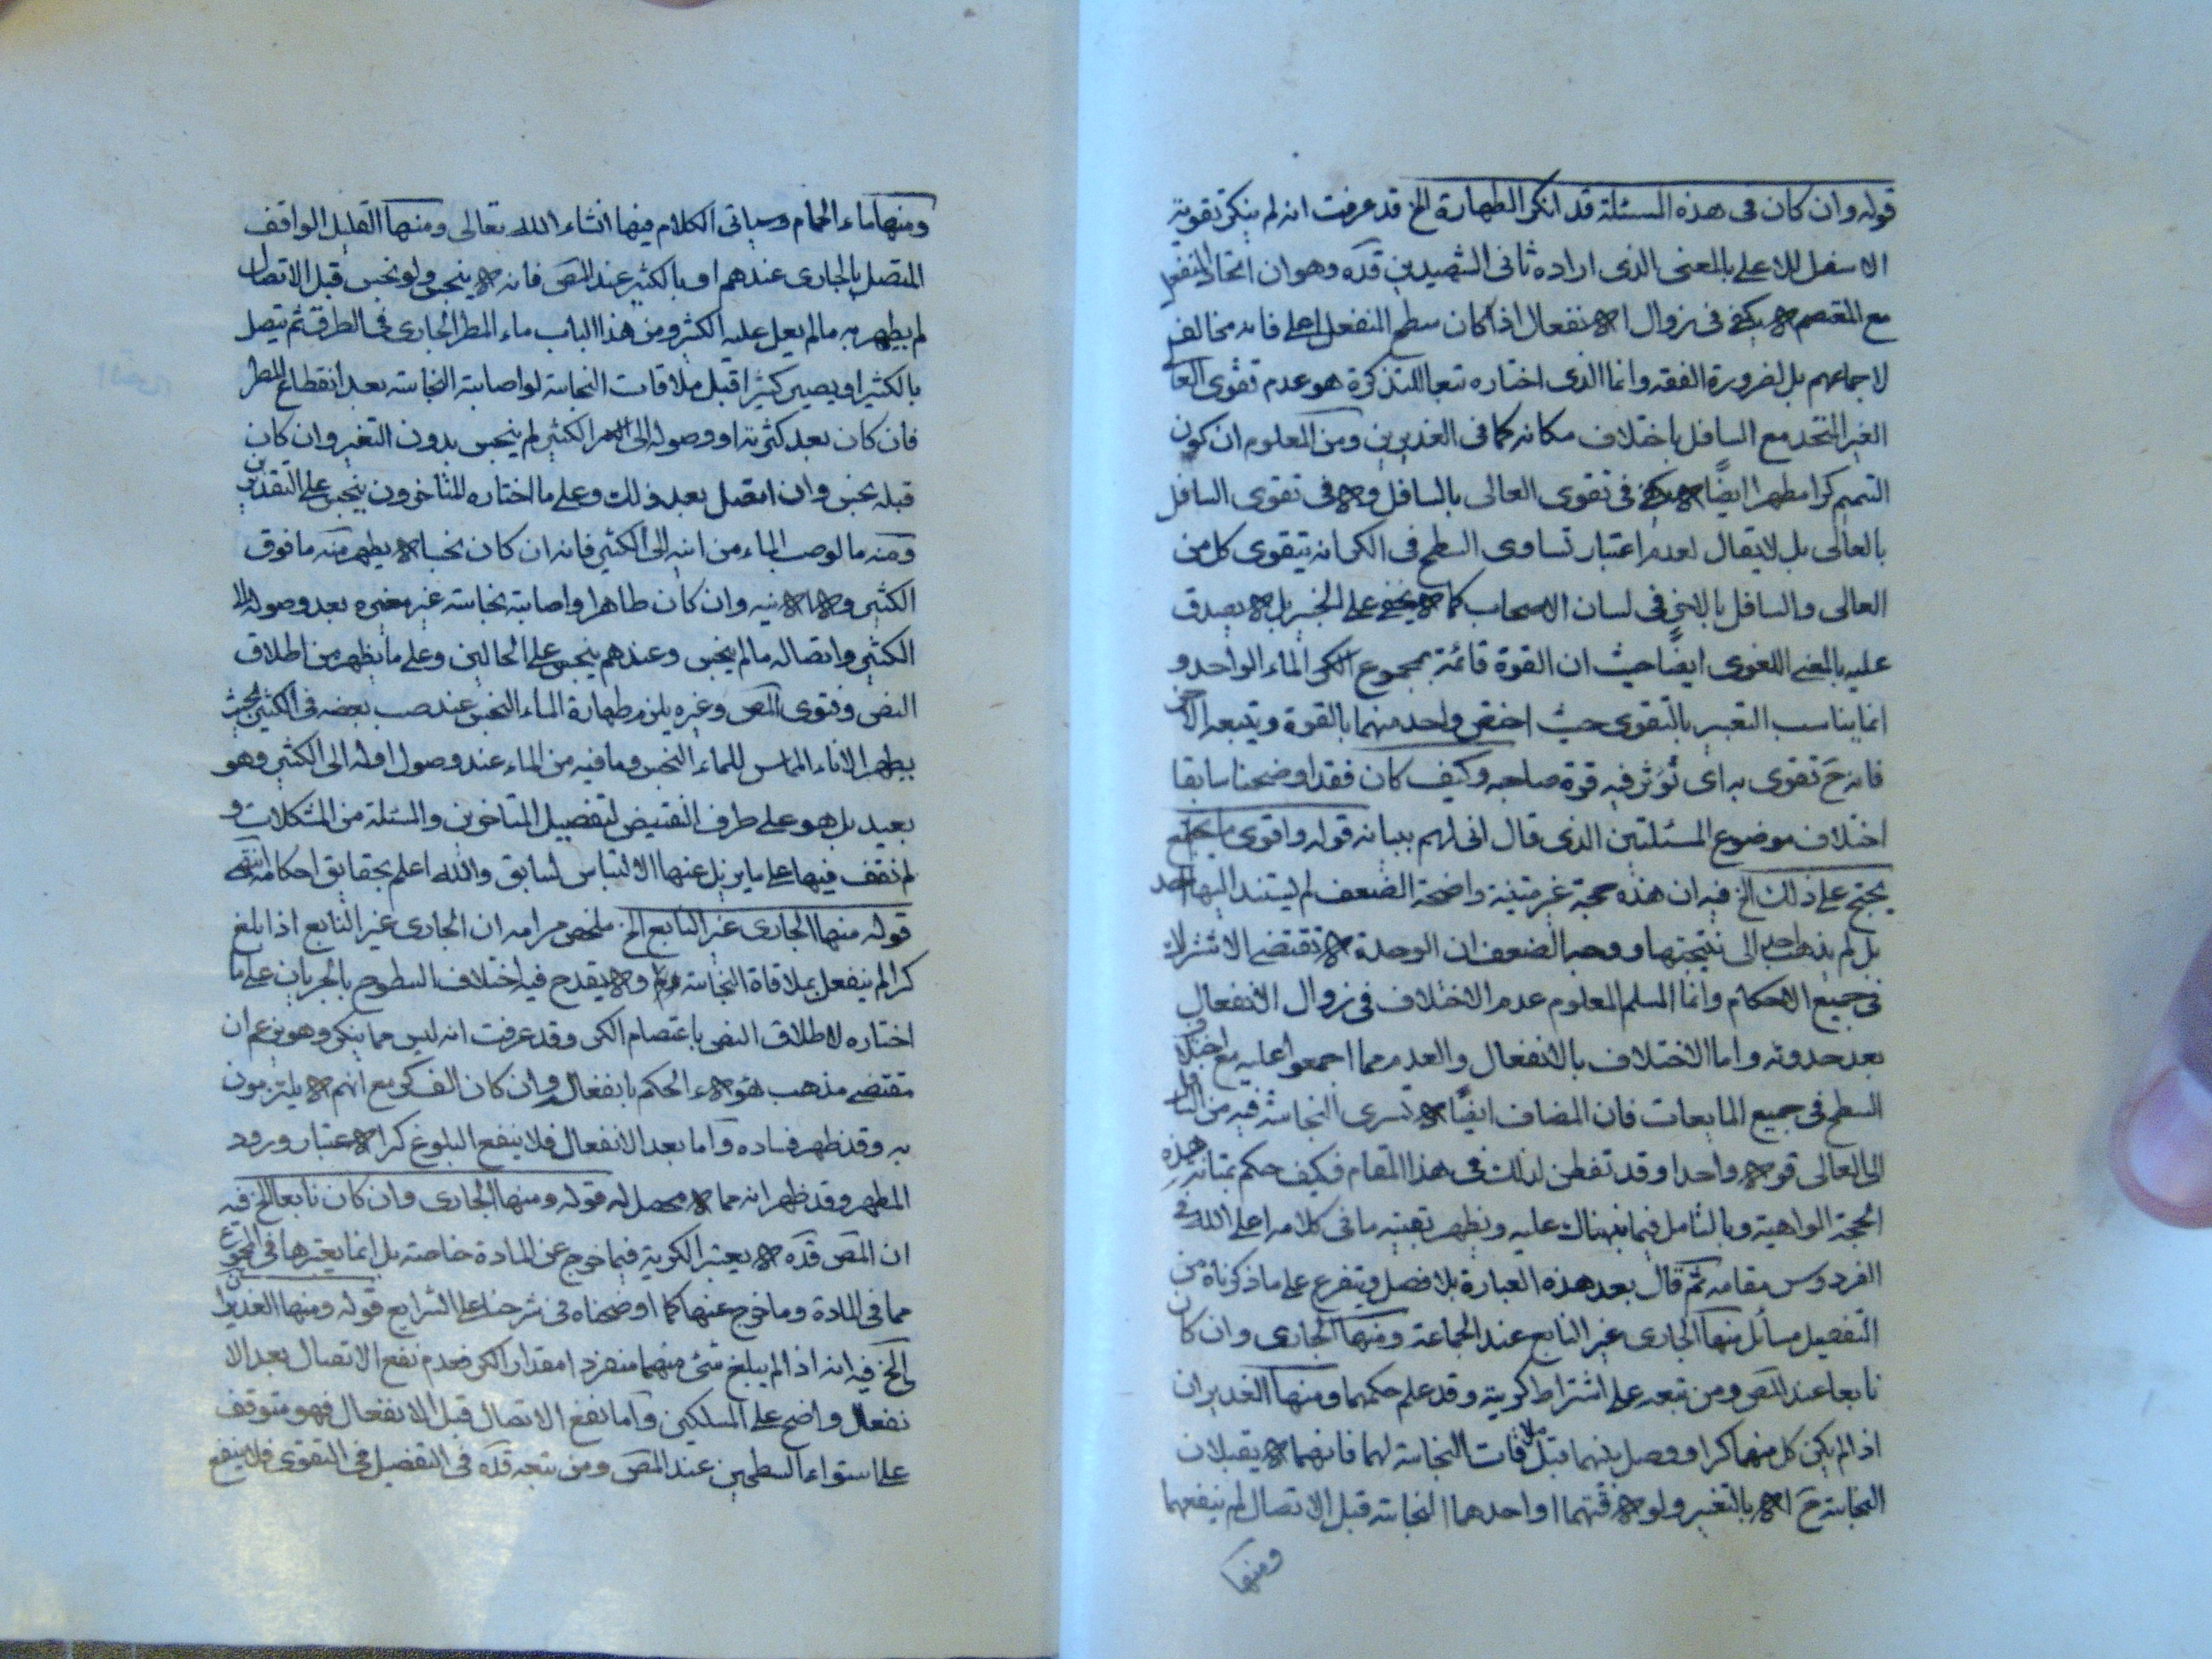 قوله وان كان فى هذه المسئلة قد انكر الطهارة الخ قد عرفت انه لم ينكر تقوية
الاسفل للاعلى بالمعنى الذى اراده ثانى الشهيدين قده وهو ان اتحاد المنفعل
مع المعتصم لا يكفى فى زوال الانفعال اذا كان سطح المنفعل اعلى فانه مخالف
لاجماعهم بل لضرورة الفقه وانما الذى اختاره تبعا للتذكرة هو عدم تقوى العا
الغير المتحد مع السافل باختلاف مكانه كما فى الغديرين ومن المعلوم ان كون
المتمم كرا مطهرا ايضًا لا يكفى فى تقوى العالى بالسافل ولا فى تقوى السافل
بالعالى بل لا يقال لعدم اعتبار تساوى السطح فى الكر انه يتقوى كل من
العالى والسافل بالاخر فى لسان الاصحاب كما لا يخفى على الخبير بل لا يصدق
عليه بالمعنى اللغوى ايضًا حيث ان القوة قائمة بمجموع الكر الماء الواحد و
انما يناسب التعبير بالتقوى حيث اختص واحد منهما بالقوة ويتبعه الاخر
فانه ح تقوى به اى تؤثر فيه قوة صاحبه وكيف كان فقد اوضحنا سابقا
اختلاف موضوع المسئلتين الذى قال انى لهم ببيانه قوله واقوى ما يحتج
يحتج على ذلك الخ فيه ان هذه حجة غير متينة واضحة الضعف لم يستند اليها احد
بل لم يذهب احد الى نتيجتها ووجه الضعف ان الوحدة لا تقتضى الاشتراك
فى جميع الاحكام وانما المسلم المعلوم عدم الاختلاف فى زوال الانفعال
بعد حدوثه واما الاختلاف بالانفعال والعدم مما اجمعوا عليه مع اختلاف
السطح فى جميع المايعات فان المضاف ايضًا لا تسرى النجاسة فيه من السا
الى العالى قولا واحدا وقد تفطن لذلك فى هذا المقام فكيف حكم بمتانة هذه
الحجة الواهية وبالتامل فيما نبهناك عليه ويظهر بقيته ما فى كلامه اعلى الله فى
الفردوس مقامه ثم قال بعد هذه العبارة بلا فصل ويتفرع على ما ذكرناه من
التفصيل مسائل منها الجارى غير النابع عند الجماعة ومنها الجارى وان كان
نابعا عند المص ومن تبعه على اشتراط كريته وقد علم حكمهما ومنها الغديران
اذا لم يكن كل منهما كرا ووصل بينهما قبل ملاقات النجاسة لهما فانهما لا يقبلان
النجاسة ح الا بالتغير ولو لاقتهما او احدهما النجاسة قبل الاتصال لم ينفعهما
ومنها
ومنها ماء الحمام وسياتى الكلام فيها انشاء الله تعالى ومنها القليل الواقف
المتصل بالجارى عندهم او بالكثير عند المص فانه لا ينجس ولو نجس قبل الاتصال
لم يطهر به ما لم يعل عليه الكثير ومن هذا الباب ماء المطر الجارى فى الطرق ثم يتصل
بالكثير او يصير كثيرا قبل ملاقات النجاسة لو اصابته النجاسة بعد انقطاع المطر
فان كان بعد كثرته او وصوله الى الكثير لم ينجس بدون التغير وان كان
قبله نجس وان اتصل بعد ذلك وعلى ما اختاره المتاخرون ينجس على التقديرين
ومنه ما لو صب الماء من انية الى الكثير فانه ان كان نجسا لا يطهر منه ما فوق
الكثير ولا الانية وان كان طاهرا واصابته نجاسة غير مغيره بعد وصوله الى
الكثير واتصاله ما لم ينجس وعندهم ينجس على الحالين وعلى ما يظهر من اطلاق
النص وفتوى المص وغيره يلزم طهارة الماء النجس عند صب بعضه فى الكثير بحيث
يطهر الاناء المماس للماء النجس وما فيه من الماء عند وصول اوله الى الكثير وهو
بعيد بل هو على طرف النقيض لتفصيل المتاخرين والمسئلة من المشكلات و
لم نقف فيها على ما يزيل عنها الالتباس لسابق والله اعلم بحقايق احكامه انتهى
قوله منها الجارى غير النابع الخ ملخص مرامه ان الجارى غير النابع اذا بلغ
كرا لم ينفعل بملاقاة النجاسة ولا يقدح فيه اختلاف السطوح بالجريان على ما
اختاره لاطلاق النص باعتصام الكر وقد عرفت انه ليس مما ينكر وهو يزعم ان
مقتضى مذهب هؤلاء الحكم بانفعال وان كان الف كر مع انهم لا يلتزمون
به وقد ظهر فساده واما بعد الانفعال فلا ينفع البلوغ كرا لاعتبار ورود
المطهر وقد ظهر انه مما لا محصل له قوله ومنها الجارى وان كان نابعا الخ فيه
ان المص قده لا يعتبر الكرية فيما خرج عن المادة خاصة بل انما يعتبرها فى المجموع
مما فى المادة وما خرج عنها كما اوضحناه فى شرحنا على الشرايع قوله ومنها الغديران
الخ فيه انه اذا لم يبلغ شئ منهما منفردا مقدار الكر فعدم نفع الاتصال بعد الا
نفعال واضح على المسلكين واما نفع الاتصال قبل الانفعال فهو متوقف
على استواء السطحين عند المص ومن تبعه قده فى التفصيل فى التقوى فلا ينفع